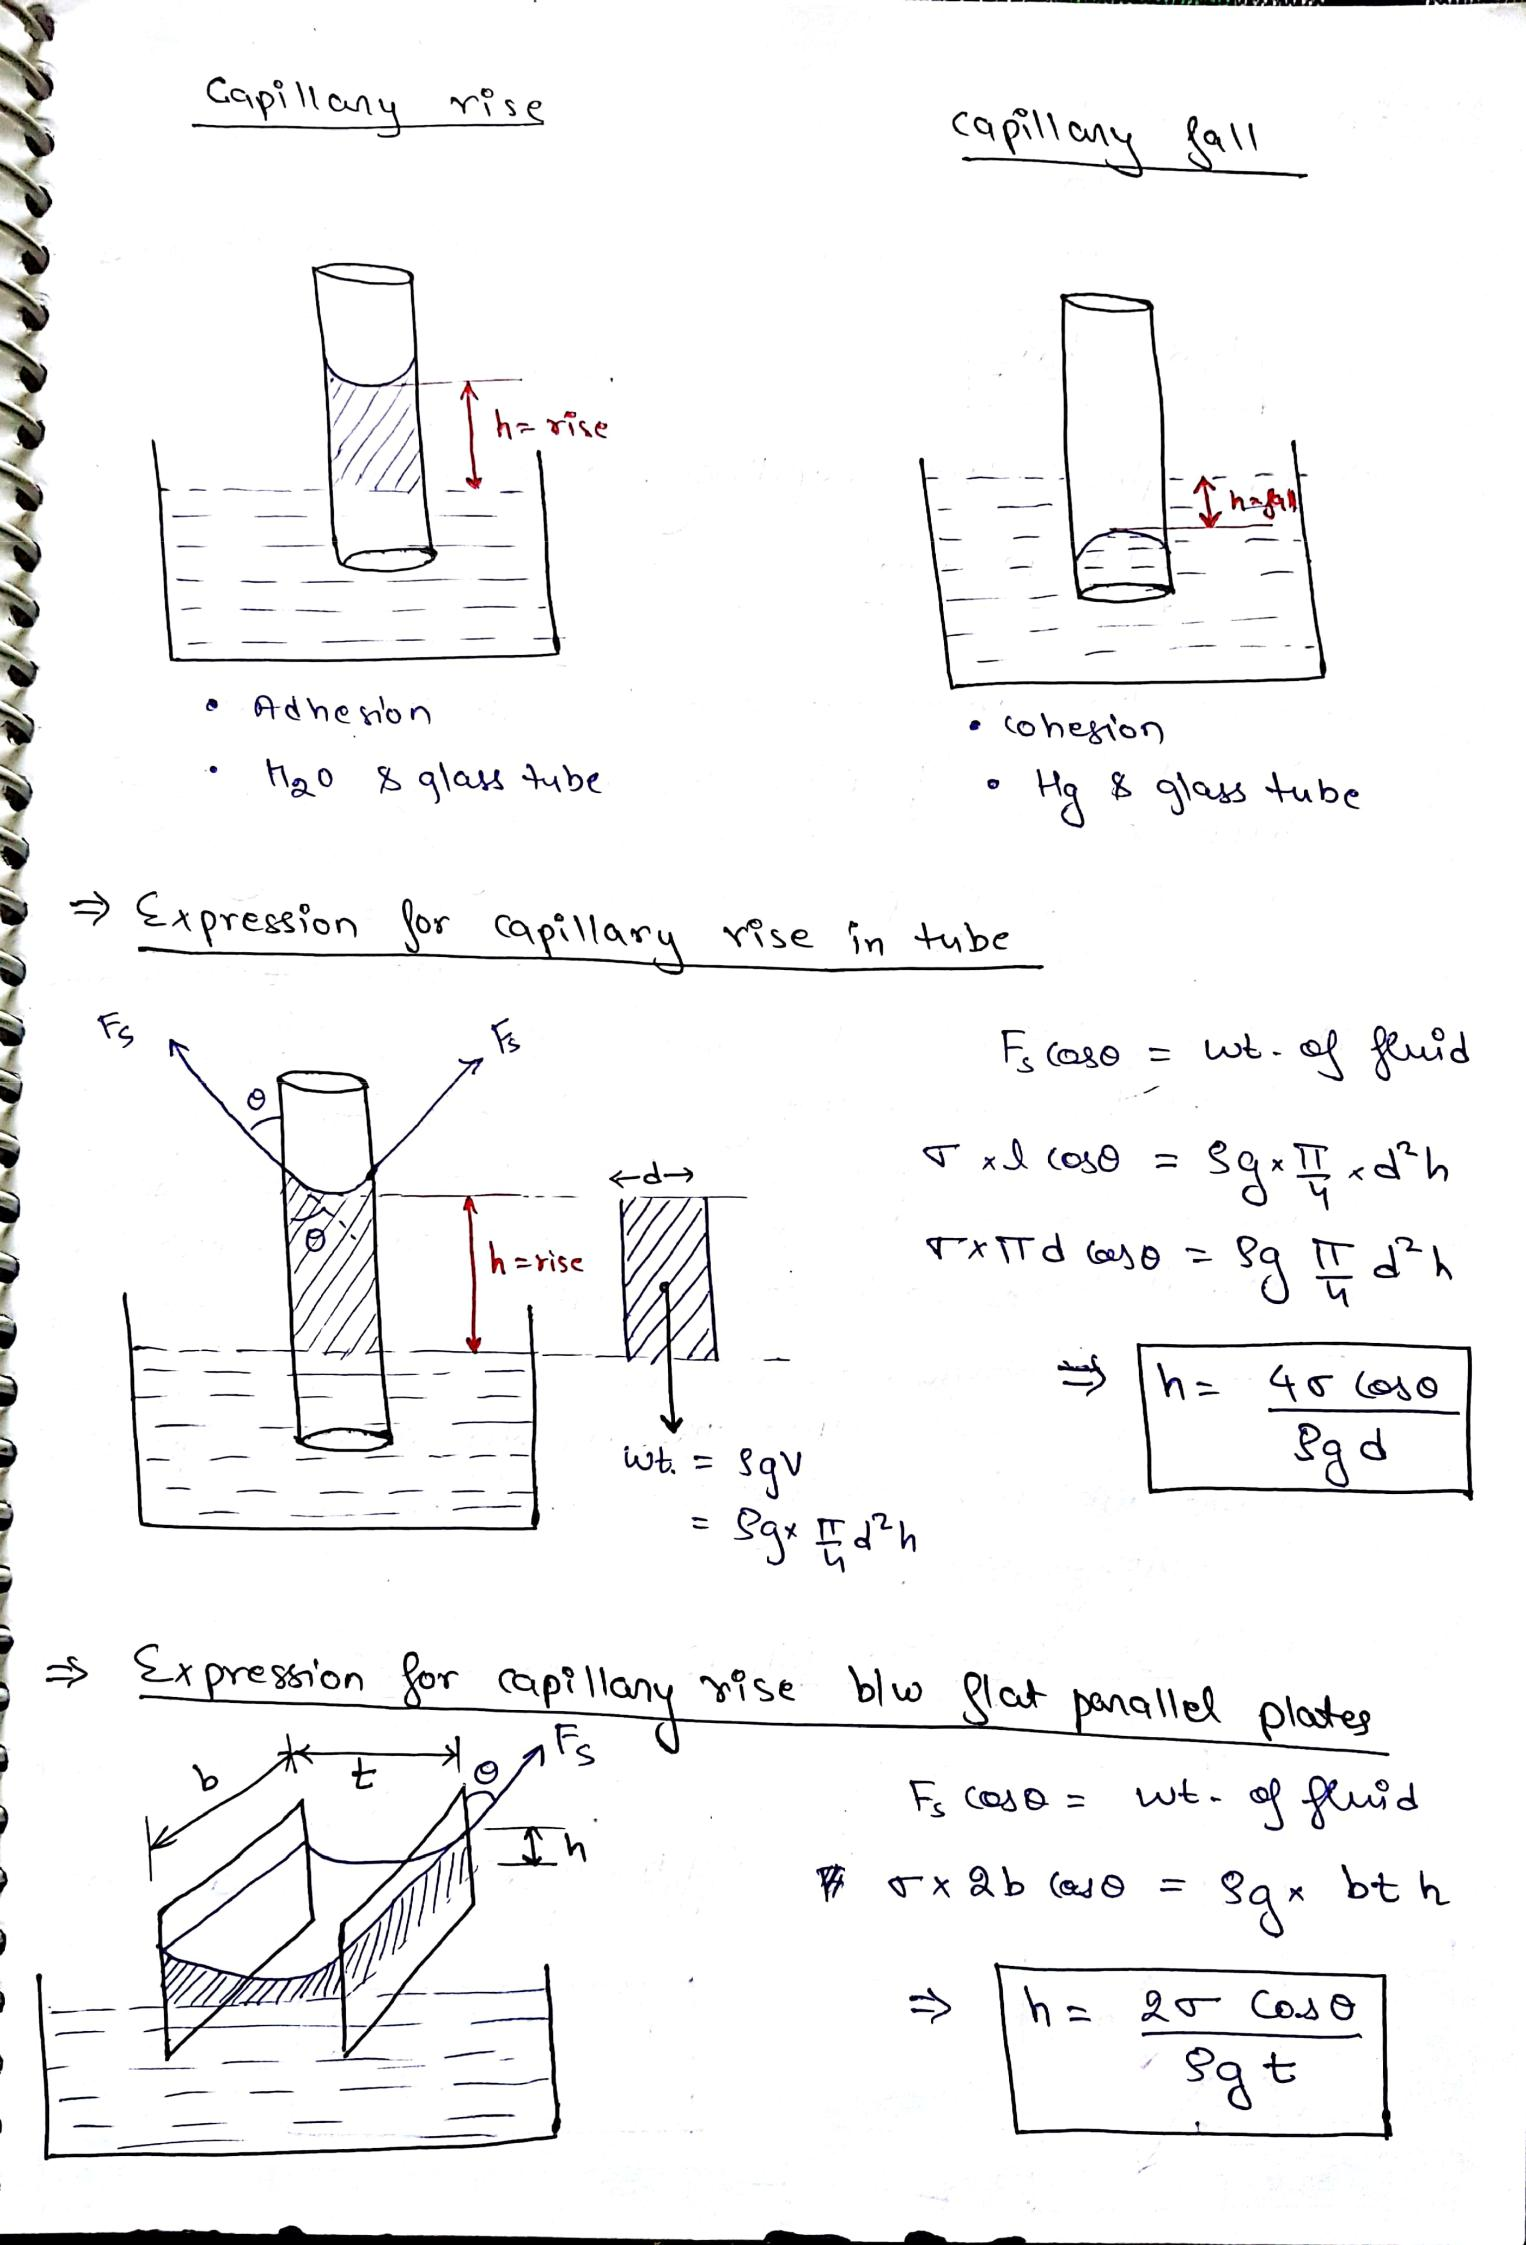 Capillary rise
capillary fall
h= rise
h=fall
• Adhesion
• H₂O & glass tube
• cohesion
• Hg & glass tube
⇒ Expression for capillary rise in tube
Fs
Fs
θ
θ
h=rise
←d→
wt. = ρgV
= ρg× π/4 d²h
Fs cosθ = wt. of fluid
σ ×l cosθ = ρg× π/4 ×d²h
σ×πd cosθ = ρg π/4 d²h
⇒ h = 4σ cosθ / ρgd
⇒ Expression for capillary rise b/w flat parallel plates
b
t
θ
Fs
h
Fs cosθ = wt. of fluid
σ× 2b cosθ = ρg× bt h
⇒ h = 2σ Cosθ / ρgt